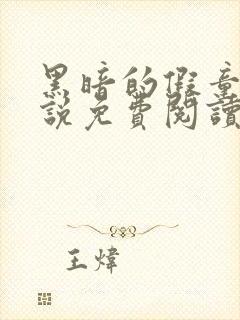 黑暗的假童
說免費閱讀
王煒